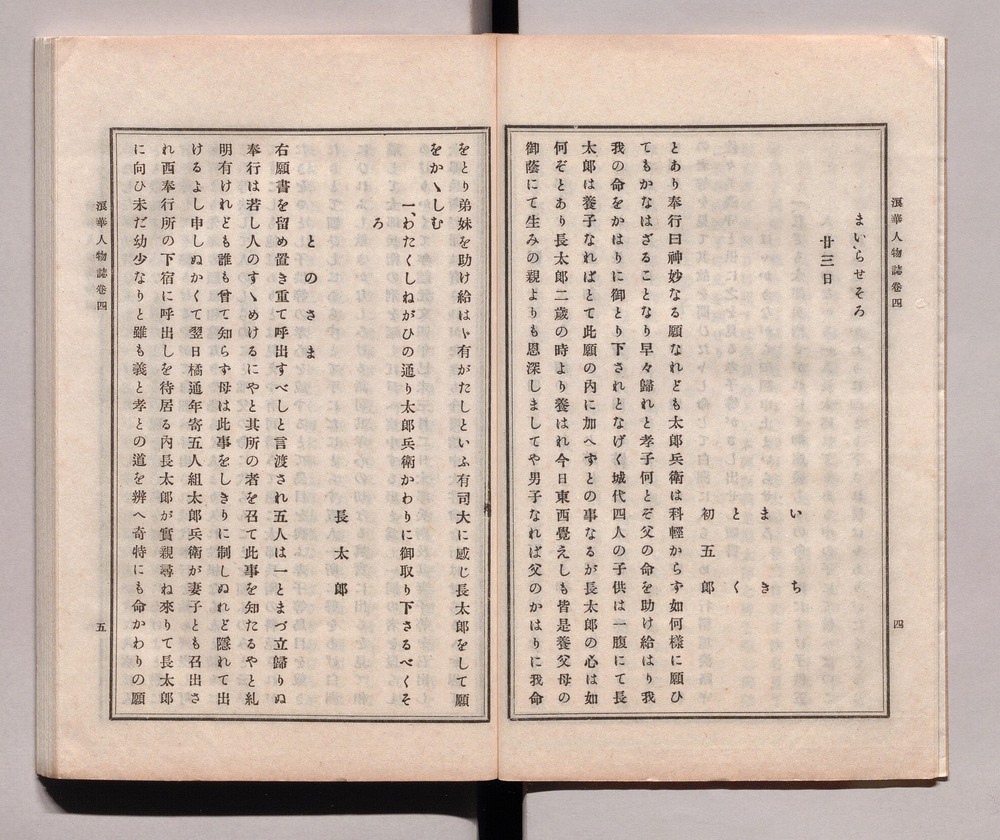 浪華人物誌卷四
四
まいらせそろ
廿三日
いち
まき
とく
初五郎
とあり奉行曰神妙なる願なれども太郎兵衛は科輕からす如何樣に願ひ
てもかなはざることなり早々歸れと孝子何とぞ父の命を助け給はり我
我の命をかはりに御とり下されとなげく城代四人の子供は一腹にて長
太郎は養子なればとて此願の内に加へすとの事なるが長太郎の心は如
何ぞとあり長太郎二歲の時より養はれ今日東西覺えしも皆是養父母の
御蔭にて生みの親よりも恩深しましてや男子なれば父のかはりに我命
をとり弟妹を助け給はゝ有がたしといふ有司大に感じ長太郎をして願
をかゝしむ
一、わたくしねがひの通り太郎兵衛かわりに御取り下さるべくそ
ろ
長太郎
とのさま
右願書を留め置き重て呼出すべしと言渡され五人は一とまづ立歸りぬ
奉行は若し人のすゝめけるにやと其所の者を召て此事を知たるやと糺
明有けれども誰も曾て知らす母は此事をしきりに制しぬれど隱れて出
けるよし申しぬかくて翌日橘通年寄五人組太郎兵衛が妻子とも召出さ
れ西奉行所の下宿に呼出しを待居る内長太郎が實親尋ね來りて長太郎
に向ひ未だ幼少なりと雖も義と孝との道を辨へ奇特にも命かわりの願
浪華人物誌卷四
五